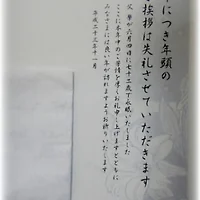 中につき年頭の
ご挨拶は失礼させていただきます
父 が六月四日に七十三歳で永眠いたしました
ここに本年中のご芳情を厚くお礼申し上げますとともに
みなさまには良い年が訪れますようお祈りいたします
平成二十三年十一月